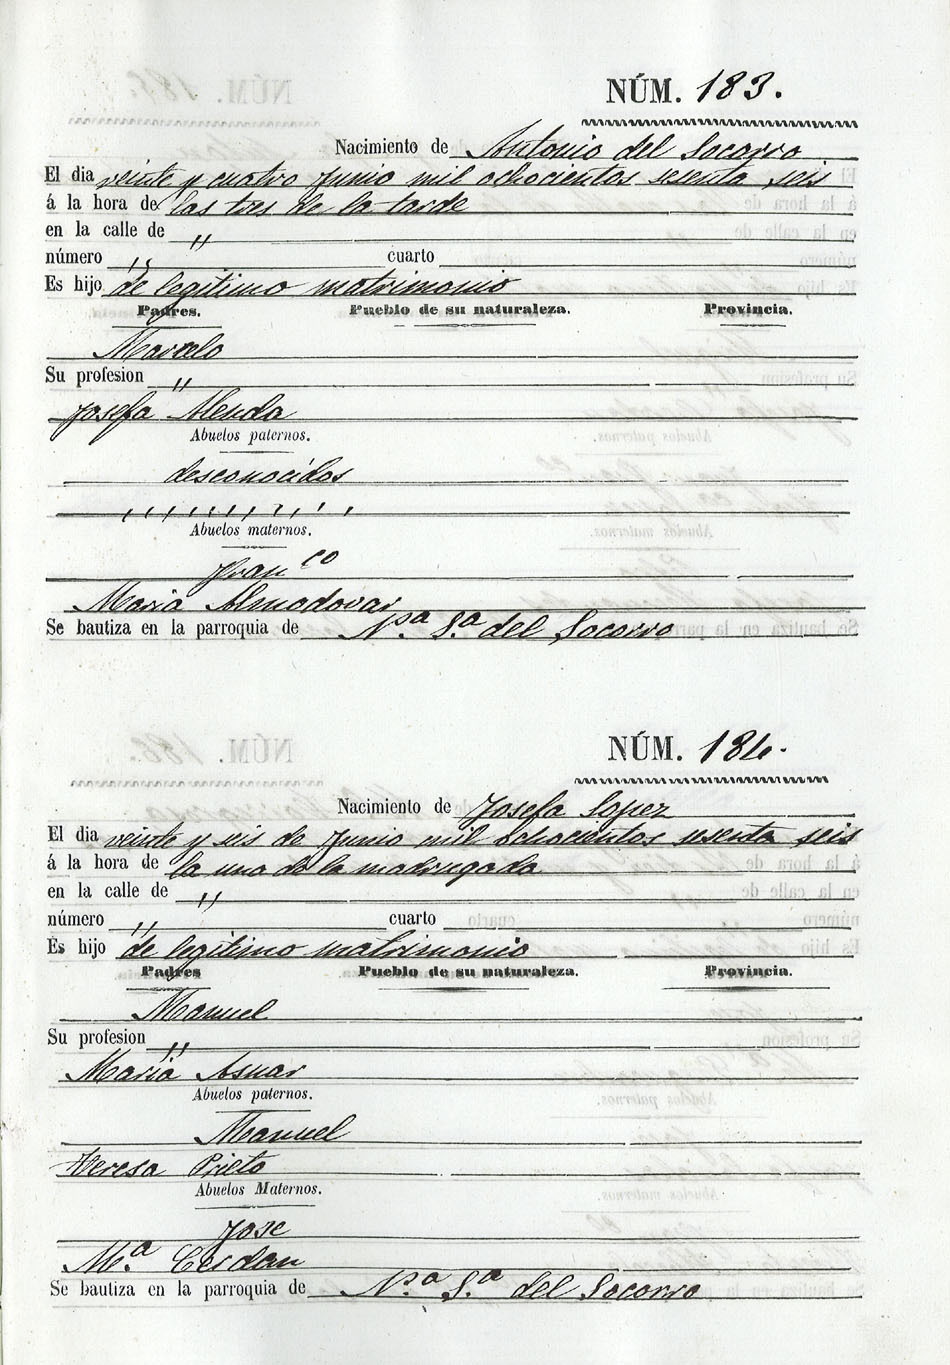 NÚM. 183.
Nacimiento de Antonio del Socorro
El dia veinte y cuatro Junio mil ochocientos sesenta seis
á la hora de las tres de la tarde
en la calle de "
número " cuarto
Es hijo de legitimo matrimonio
Padres. Pueblo de su naturaleza. Provincia.
Marcelo
Su profesion "
Josefa Alenda
Abuelos paternos.
desconocidos
Abuelos maternos.
Fran.co
Maria Almodovar
Se bautiza en la parroquia de N.a S.a del Socorro
NÚM. 184.
Nacimiento de Josefa Lopez
El dia veinte y seis de Junio mil ochocientos sesenta seis
á la hora de la una de la madrugada
en la calle de "
número " cuarto
Es hijo de legitimo matrimonio
Padres Pueblo de su naturaleza. Provincia.
Manuel
Su profesion "
Maria Asnar
Abuelos paternos.
Manuel
Teresa Prieto
Abuelos Maternos.
Jose
M.a Cerdan
Se bautiza en la parroquia de N.a S.a del Socorro